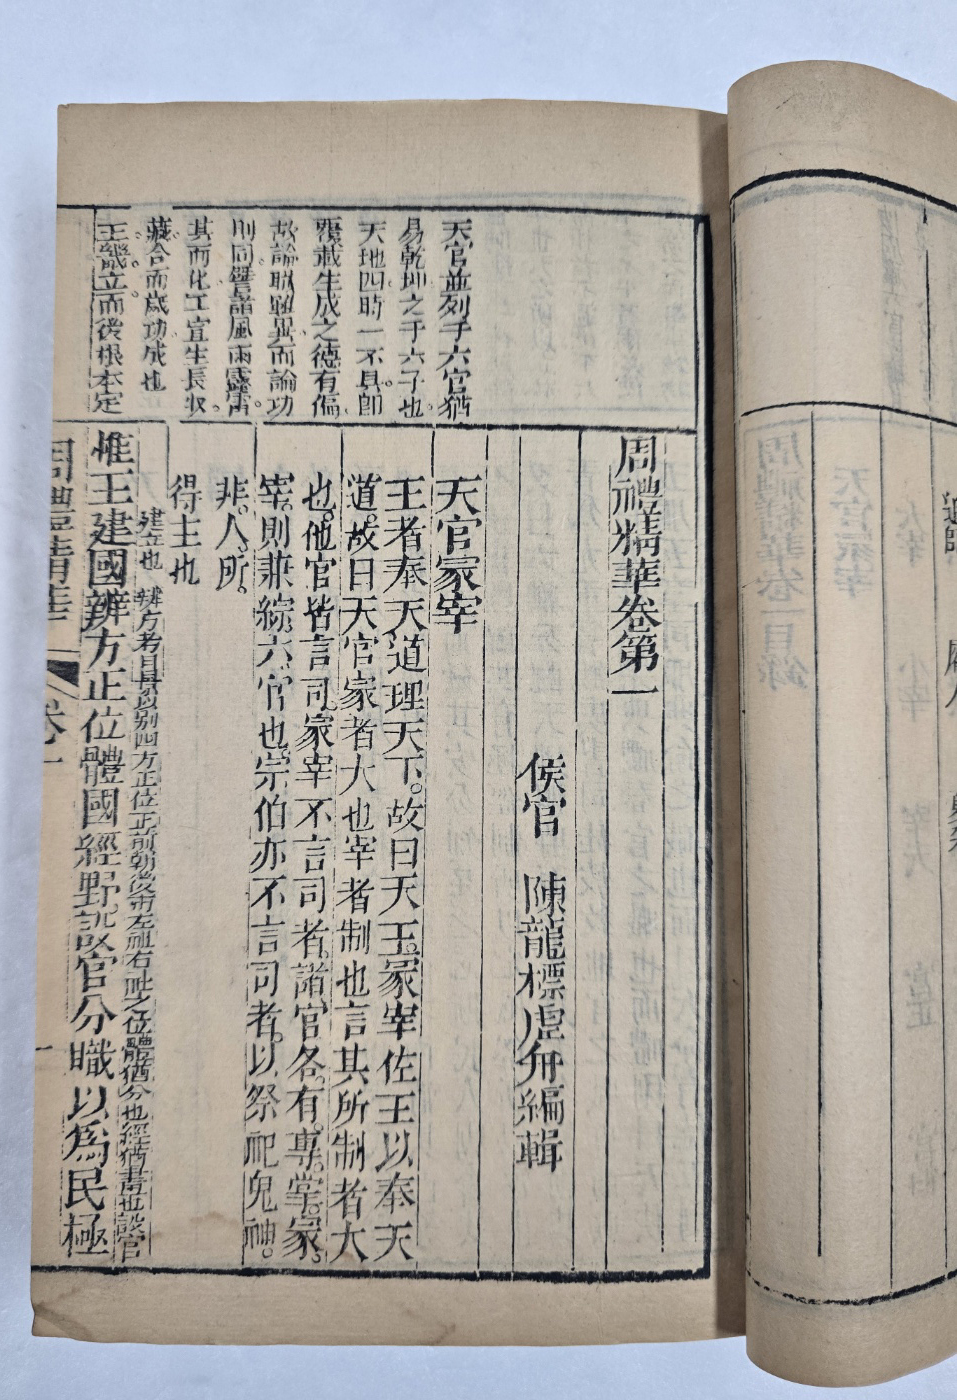 天官並列于六官猶
易乾坤之于六子也
天地四時一不具即
覆載生成之德有偏
故論職雖異而論功
則同譬諸風雨露雷
其而化工宣生長收
藏合而歲功成也
王畿立而後根本定
周禮精華卷第一
侯官 陳龍標虛舟編輯
天官冢宰
王者奉天道理天下故曰天王冢宰佐王以奉天
道故曰天官冢者大也宰者制也言其所制者大
也他官皆言司冢宰不言司者諸官各有專掌冢
宰則兼綜六官也宗伯亦不言司者以祭祀鬼神
非人所
得主也
惟王建國辨方正位體國經野設官分職以爲民極
建立也 辨方考日景以別四方正位正前朝後市左祖右社之位體猶分也經猶畫也設官
周禮精華
卷一
一